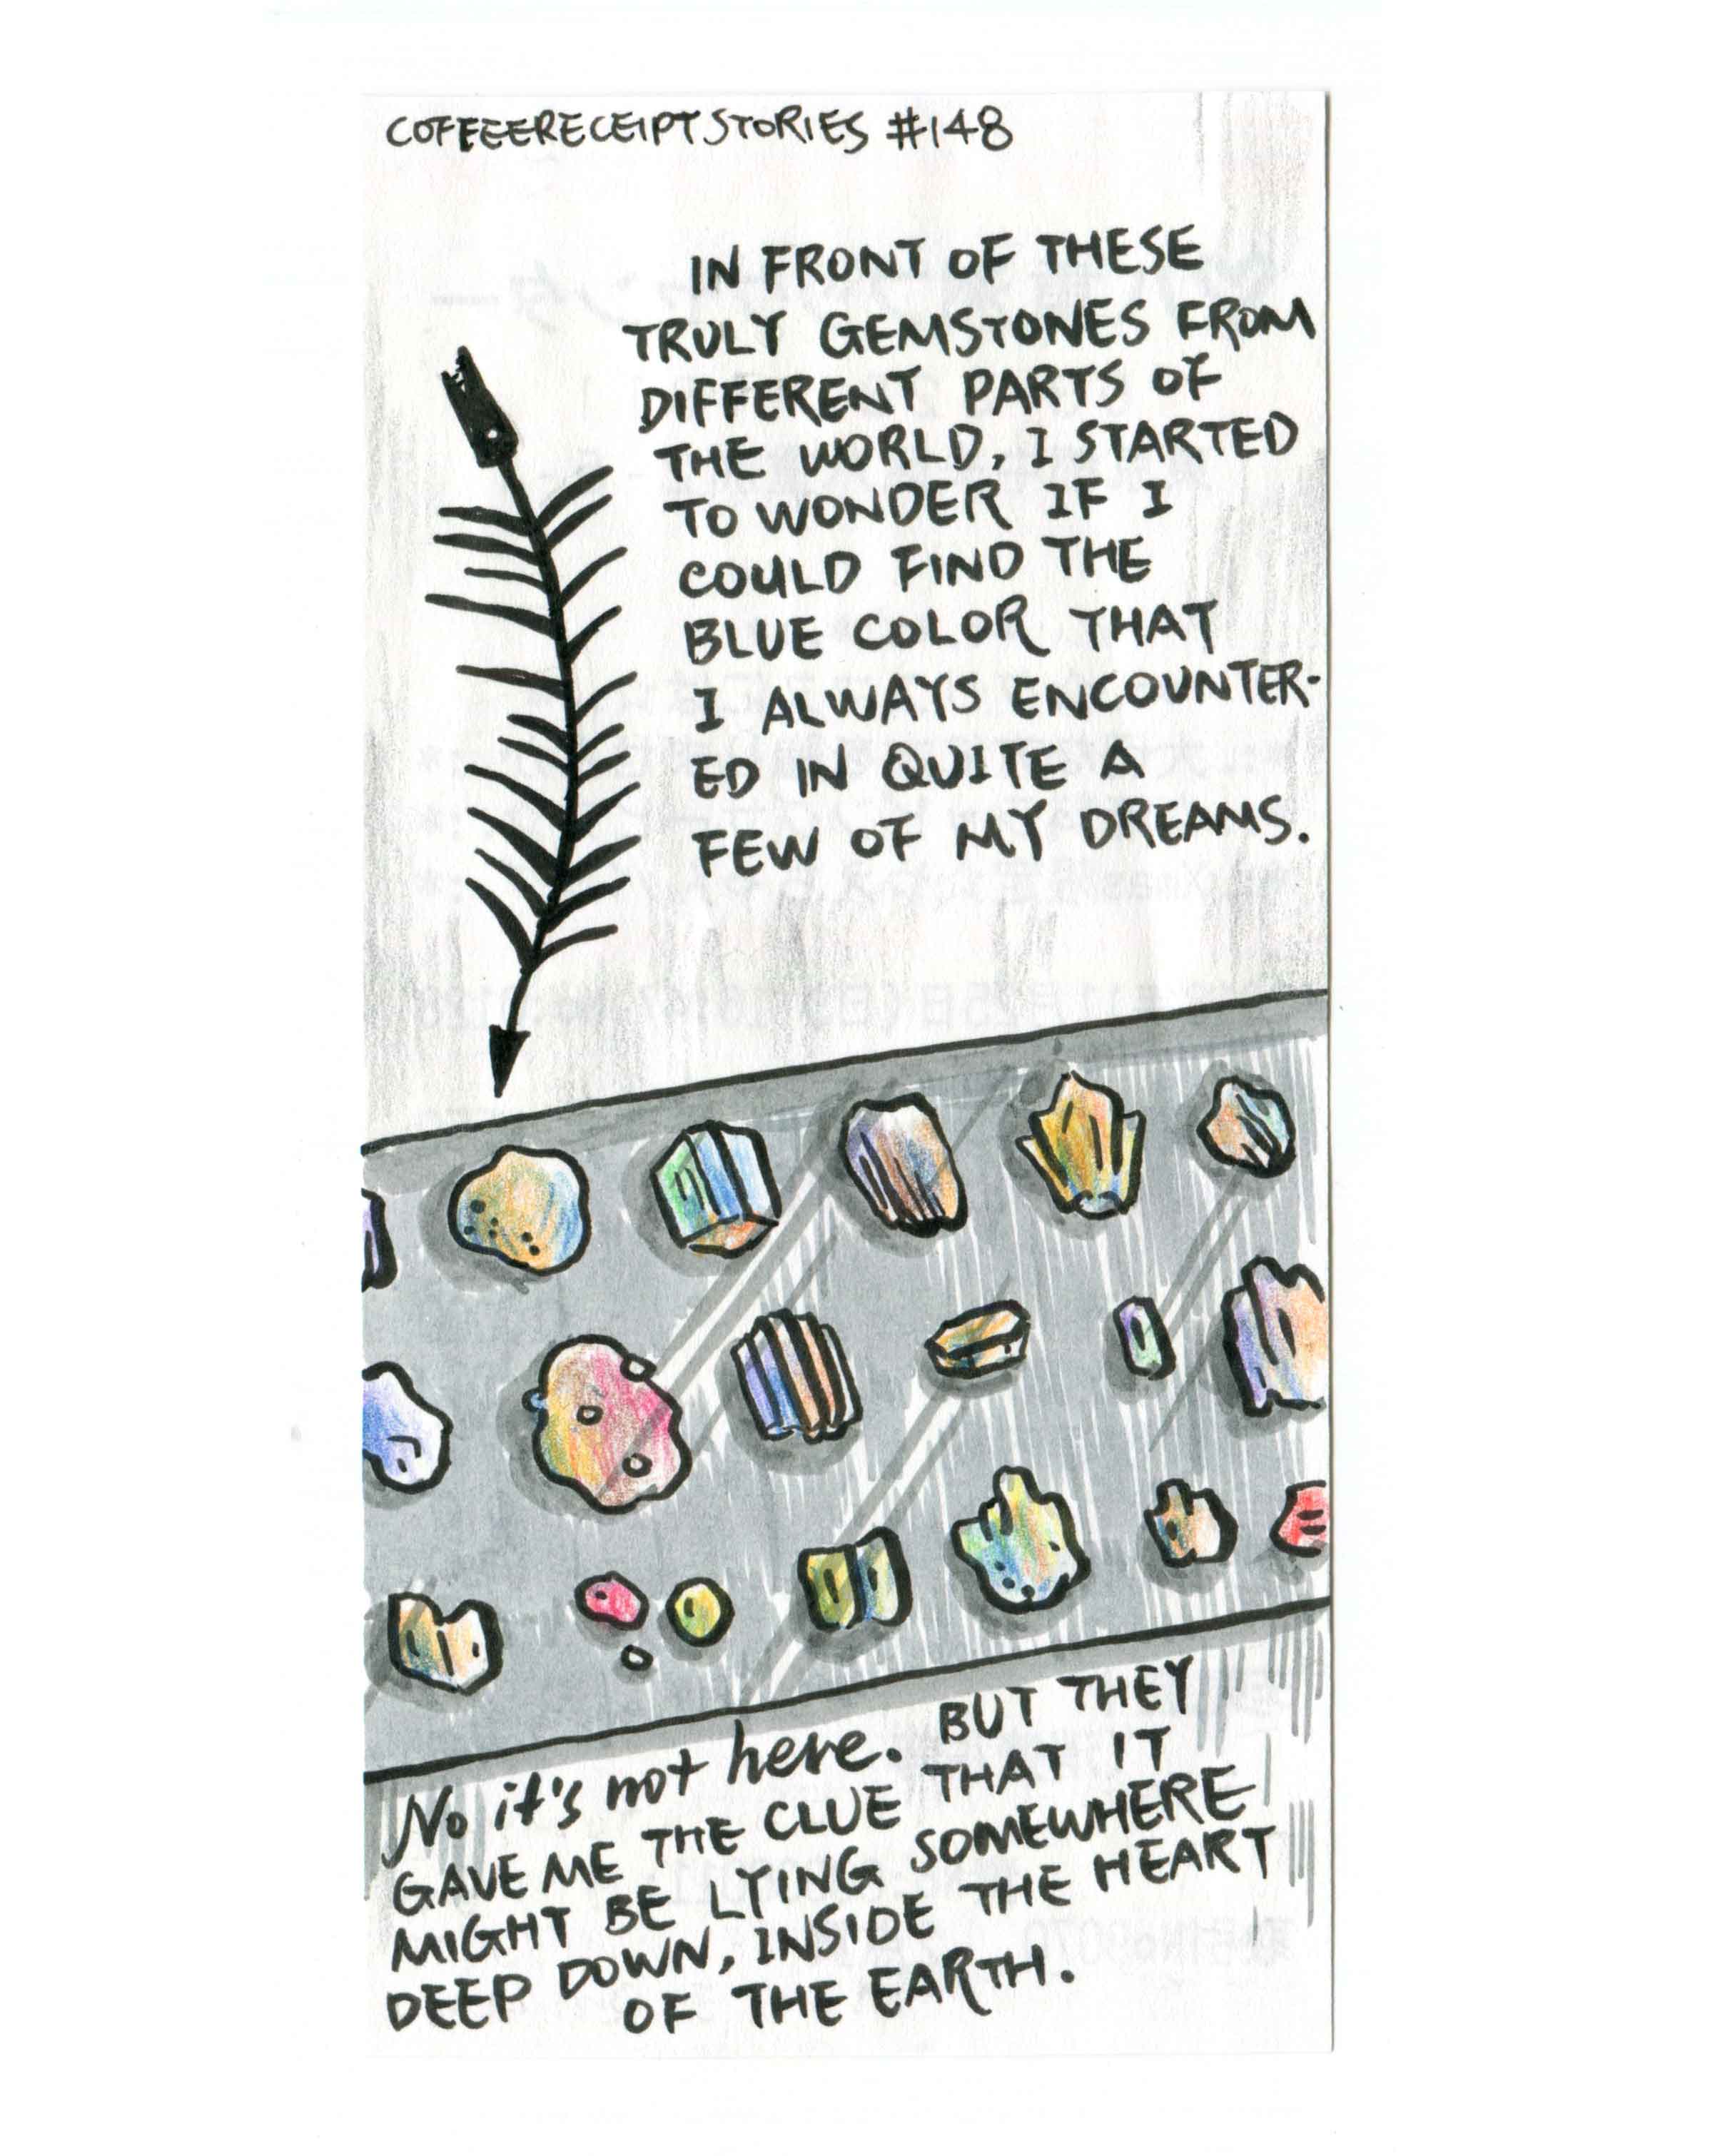 COFEEERECEIPTSTORIES #148
IN FRONT OF THESE
TRULY GEMSTONES FROM
DIFFERENT PARTS OF
THE WORLD, I STARTED
TO WONDER IF I
COULD FIND THE
BLUE COLOR THAT
I ALWAYS ENCOUNTER-
ED IN QUITE A
FEW OF MY DREAMS.
No it's not here. BUT THEY
GAVE ME THE CLUE THAT IT
MIGHT BE LYING SOMEWHERE
DEEP DOWN, INSIDE THE HEART
OF THE EARTH.